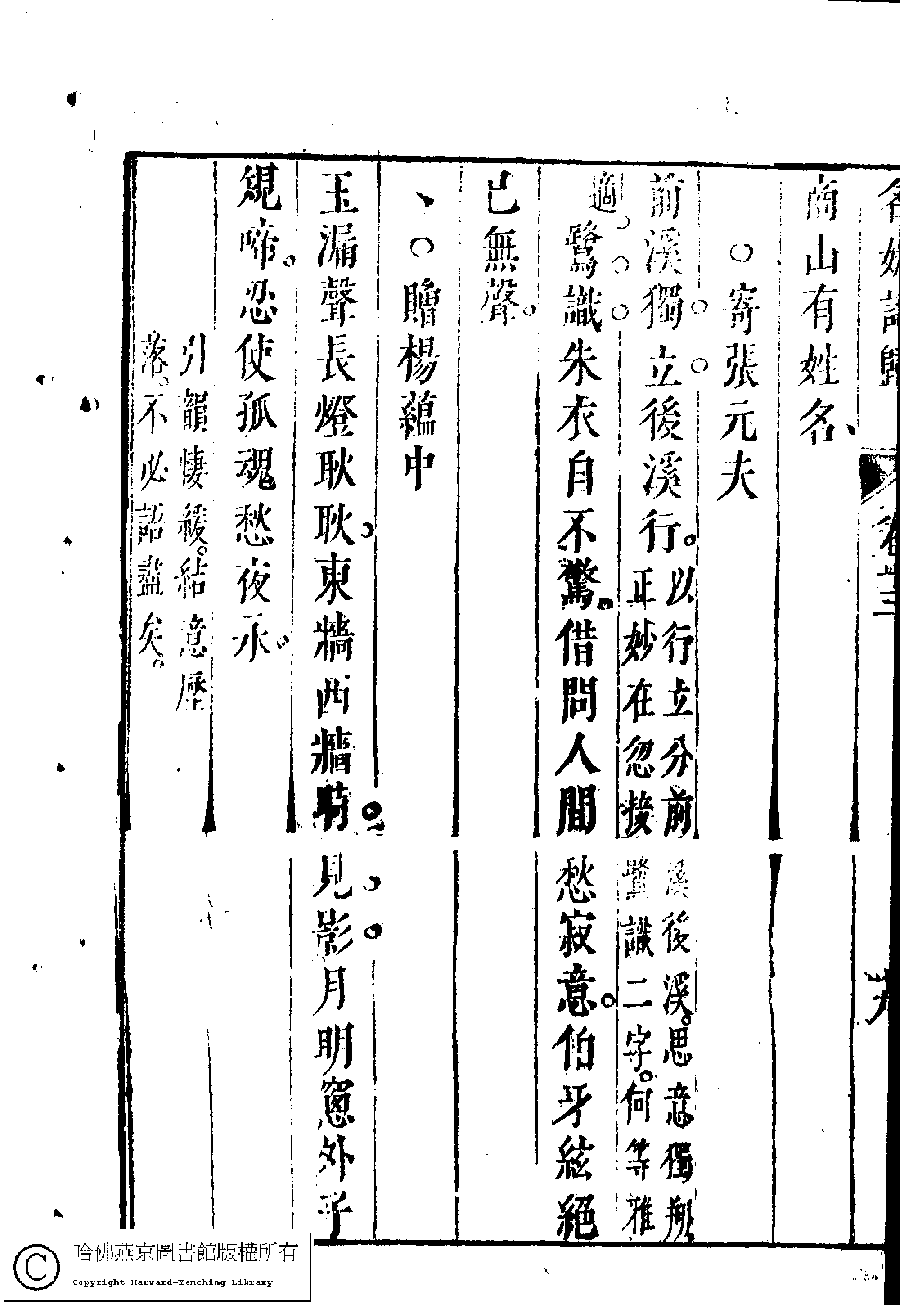 名媛詩歸 卷十三 十九
商山有姓名
○寄張元夫
前溪獨立後溪行。以行立分前溪後溪。思意獨
正妙在忽接鷺識二字。何等雅
適。鷺識朱衣自不驚。借問人間愁寂意。伯牙絃絕
已無聲。
、○贈楊蘊中
玉漏聲長燈耿耿。東牆西牆時見影月明窻外子
規啼。忍使孤魂愁夜永。
引韻悽緩。結意歷
落。不必語盡矣。
哈佛燕京圖書館版權所有
Copyright Harvard-Yenching Library